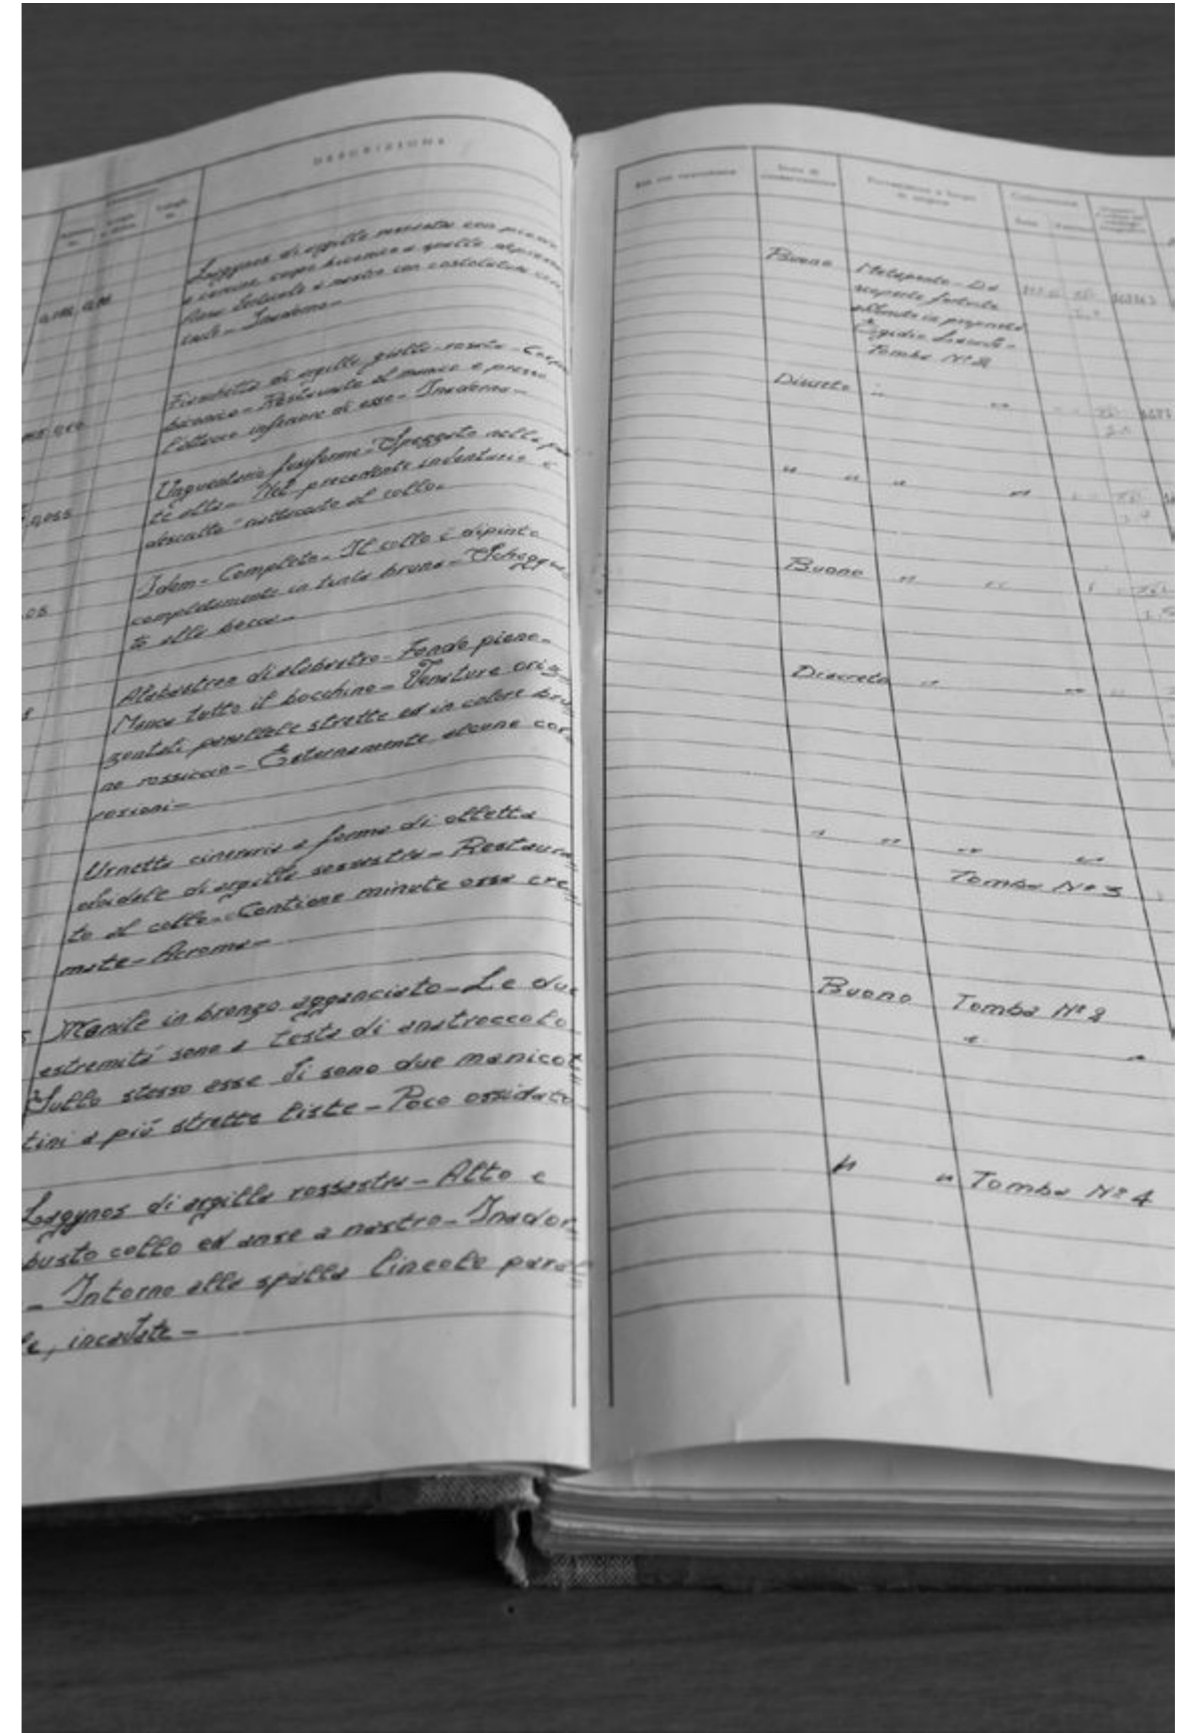 DESCRIZIONE
Lagynos di argilla rosastra con piede
e cercine, corpo biconico e spalla
Inadorno-
Fiaschetta di argilla giallo-rosata-
biconico-Restaurato al manico e presso
l'attacco inferiore di esso-Inadorna-
Unguentario fusiforme-Spezzato nella
te alta-Nel precedente inventario è
descritto "rattoccato al collo.
Idem-Completo-Il collo è dipinto
completamente in tinta bruna-Scheggia
to alla bocca-
Alabastron di alabastro-Fondo pieno-
Manca tutto il bocchino-Venature oriz=
zontali parallele strette ed in colore bru
no rossiccio-Esternamente alcune cor
rosioni-
Urnetta cineraria a forma di olletta
ovoidale di argilla rossastra-Restaura
to al collo-Contiene minute ossa cre
mate-Acroma-
Manile in bronzo agganciato-Le due
estremità sono a testa di anatroccolo
Sullo stesso asse vi sono due manicot
tini a più strette liste-Poco ossidato
Lagynos di argilla rossastra-Alto e
busto collo ed anse a nastro-Inador
-Intorno alla spalla lineole paral
le, incavate-
Buono Metaponto-Da
scoperte fortuite
Tomba Nº 2
Discreto " "
" " " "
Buono " "
Discreto " "
" " " "
Tomba Nº 3
Buono Tomba Nº 2
" "
" " Tomba Nº 4